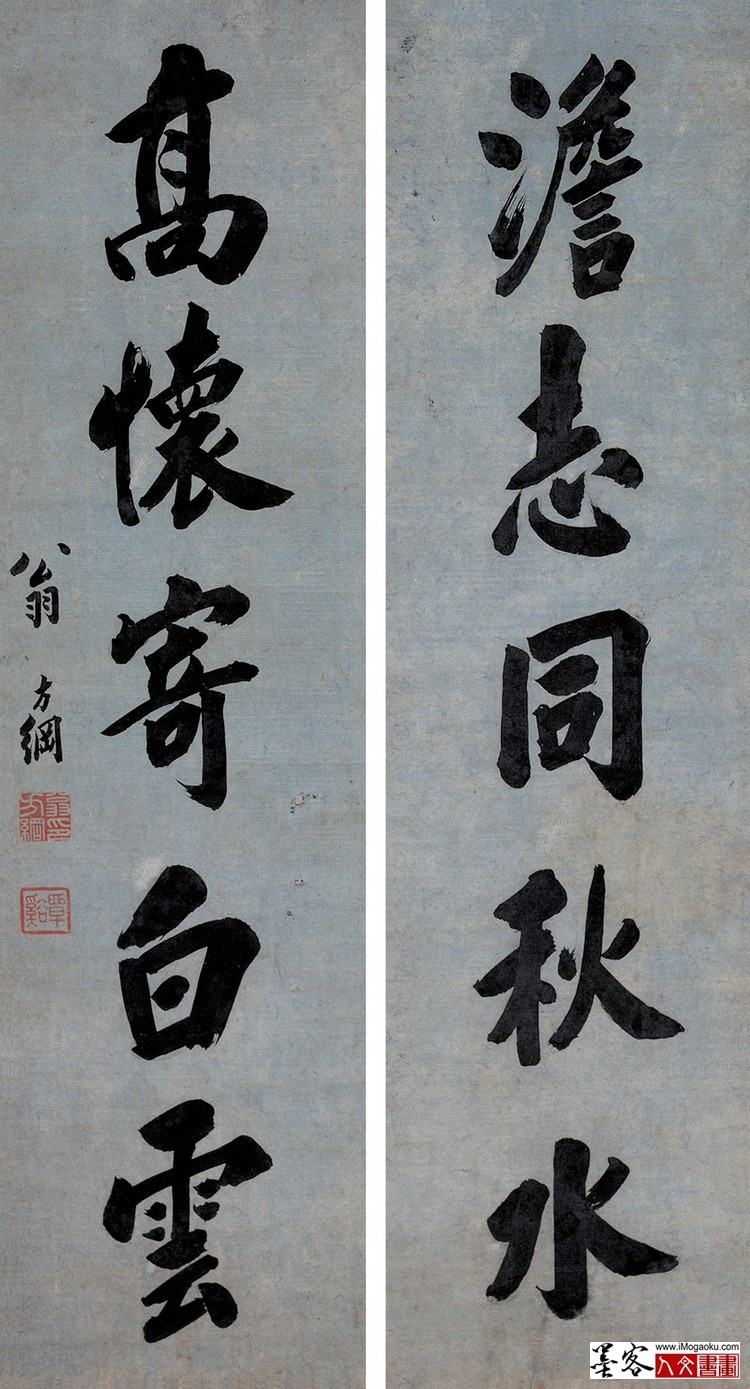 澹志同秋水
高懷寄白雲
翁方綱
翁方綱印
覃谿
墨客
www.iMogaoku.com
人文書畫